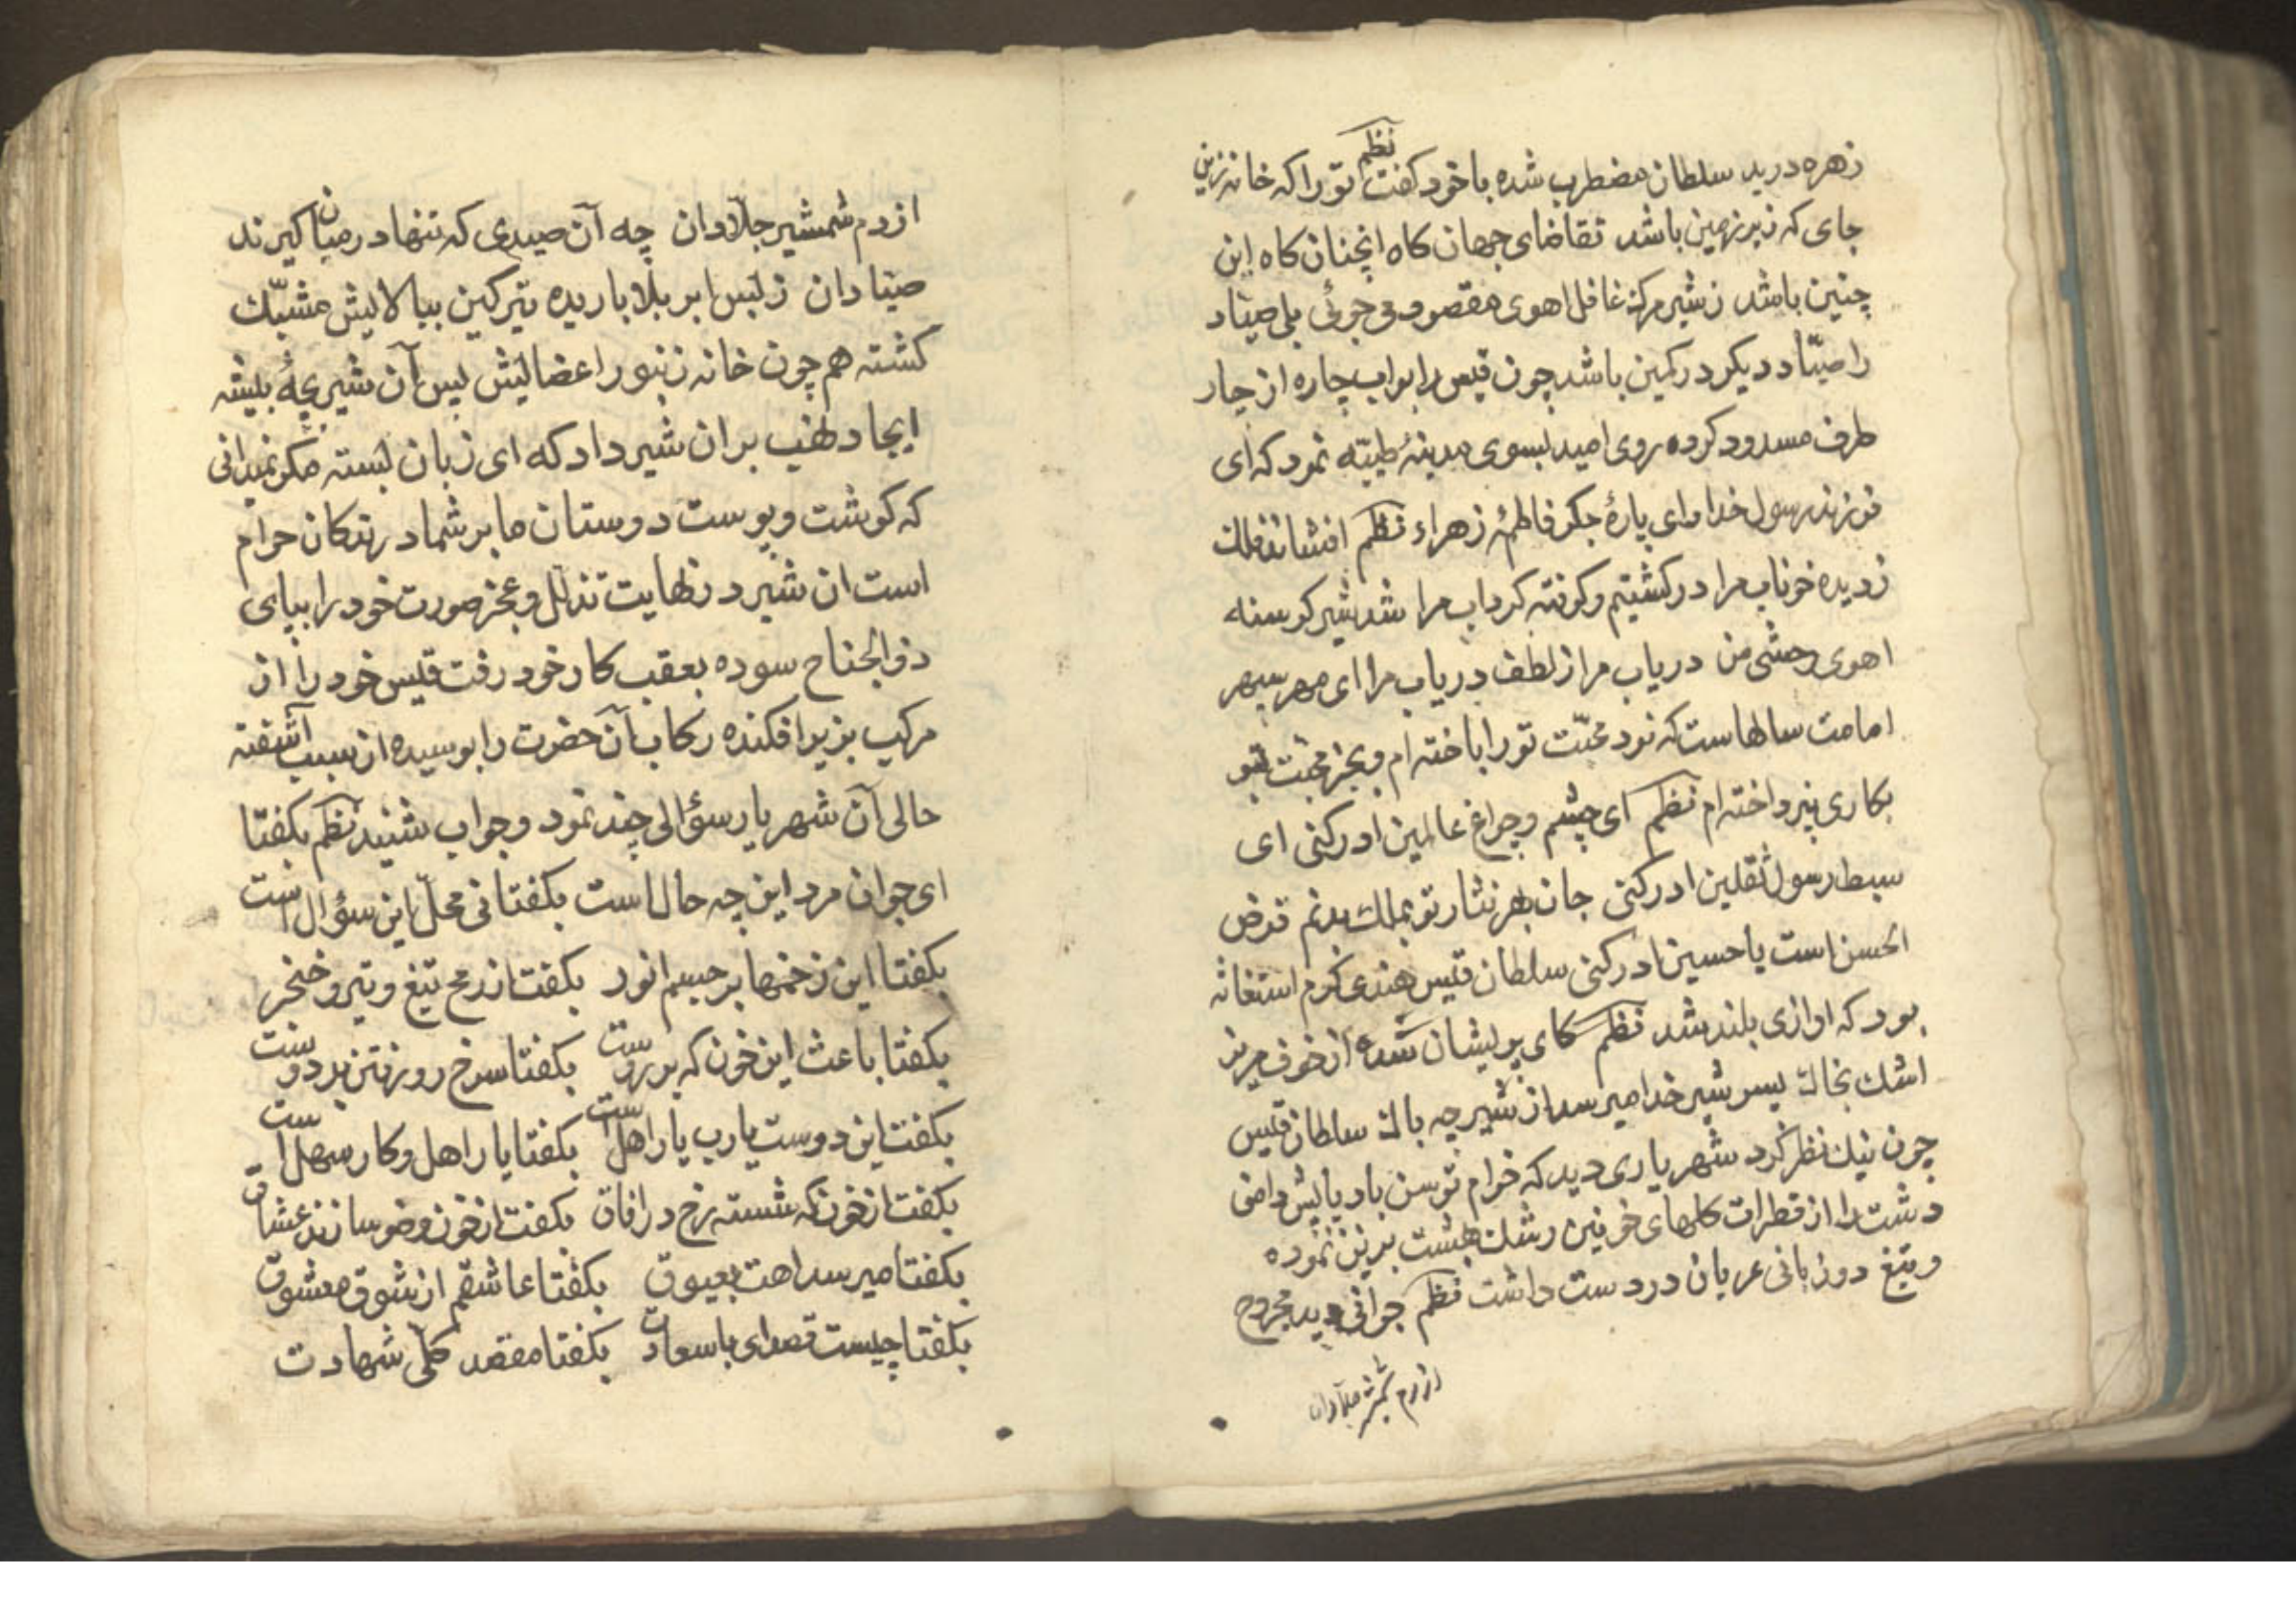 زهره درید سلطان مضطرب شده با خود کفت نظم تو را که خانه زرین
جای که زیر زمین باشد تقاضای جهان کاه انچنان کاه این
چنین باشد ز شیر مرک غافل اهوی مقصود می جوئی بلی صیّاد
را صیّاد دیکر در کمین باشد چون قیس را ابواب چاره از چار
طرف مسدود کرده روی امید بسوی مدینهٔ طیبّه نمود که ای
فرزند رسول خدا و ای پارهٔ جکر فاطمهٔ زهراء نظم افشاند فلک
ز دیده خوناب مرا در کشتیم و کرفته کرداب مرا شد شیر کرسنه
اهوی وحشی من دریاب مرا ز لطف دریاب مرا ای مهر سپهر
امامت سالهاست که نرد محبّت تو را باختهام و بجز محبّت تو
بکاری نپرداختهام نظم ای چشم و چراغ عالمین ادرکنی ای
سبط رسول ثقلین ادرکنی جان بهر نثار تو بملک بدنم قرض
الحسن است یا حسین ادرکنی سلطان قیس هندی کرم استغاثه
بود که اوازی بلند شد نظم کای پریشان شده از خوف مریز
اشک بخاک پسر شیر خدا میرسد از شیر چه باک سلطان قیس
چون نیک نظر کرد شهریاری دید که خرام توسن باد پایش دامن
دشت را از قطرات کلهای خونین رشک بهشت برین نموده
و تیغ دو زبانی عریان در دست داشت نظم جوانی دید مجروح
از دم شمشیر جلّادان
از دم شمشیر جلّادان چه آن صیدی که تنها در میان کیرند
صیّادان ز لبس ابر بلا باریده تیر کین ببالایش مشبّک
کشته هم چون خانه زنبور اعضایش پس آن شیر بچهٔ بیشه
ایجاد نهیب بران شیر داد که ای زبان بسته مکر نمیدانی
که کوشت و پوست دوستان ما بر شما درندکان حرام
است ان شیر در نهایت تذلّل و عجز صورت خود را بپای
ذو الجناح سوده بعقب کار خود رفت قیس خود را از
مرکب بزیر افکنده رکاب آن حضرت را بوسیده از سبب آشفته
حالی آن شهریار سؤالی چند نمود و جواب شنید نظم بکفتا
ای جوان مرد این چه حال است بکفتا نی محلّ این سؤال است
بکفتا این زخمها بر جسم انور بکفت از رمح تیغ و تیر و خنجر
بکفتا باعث این خون که بر روست بکفتا سرخ رو رفتن بر دوست
بکفت این دوست یا رب یار اهل است بکفتا یار اهل و کار سهل است
بکفت از خون که شسته رخ در افاق بکفت از خون وضو سازند عشاق
بکفتا میرسد اهت بعیوق بکفتا عاشقم از شوق معشوق
بکفتا چیست قصد ای با سعادت بکفتا مقصد کلّی شهادت